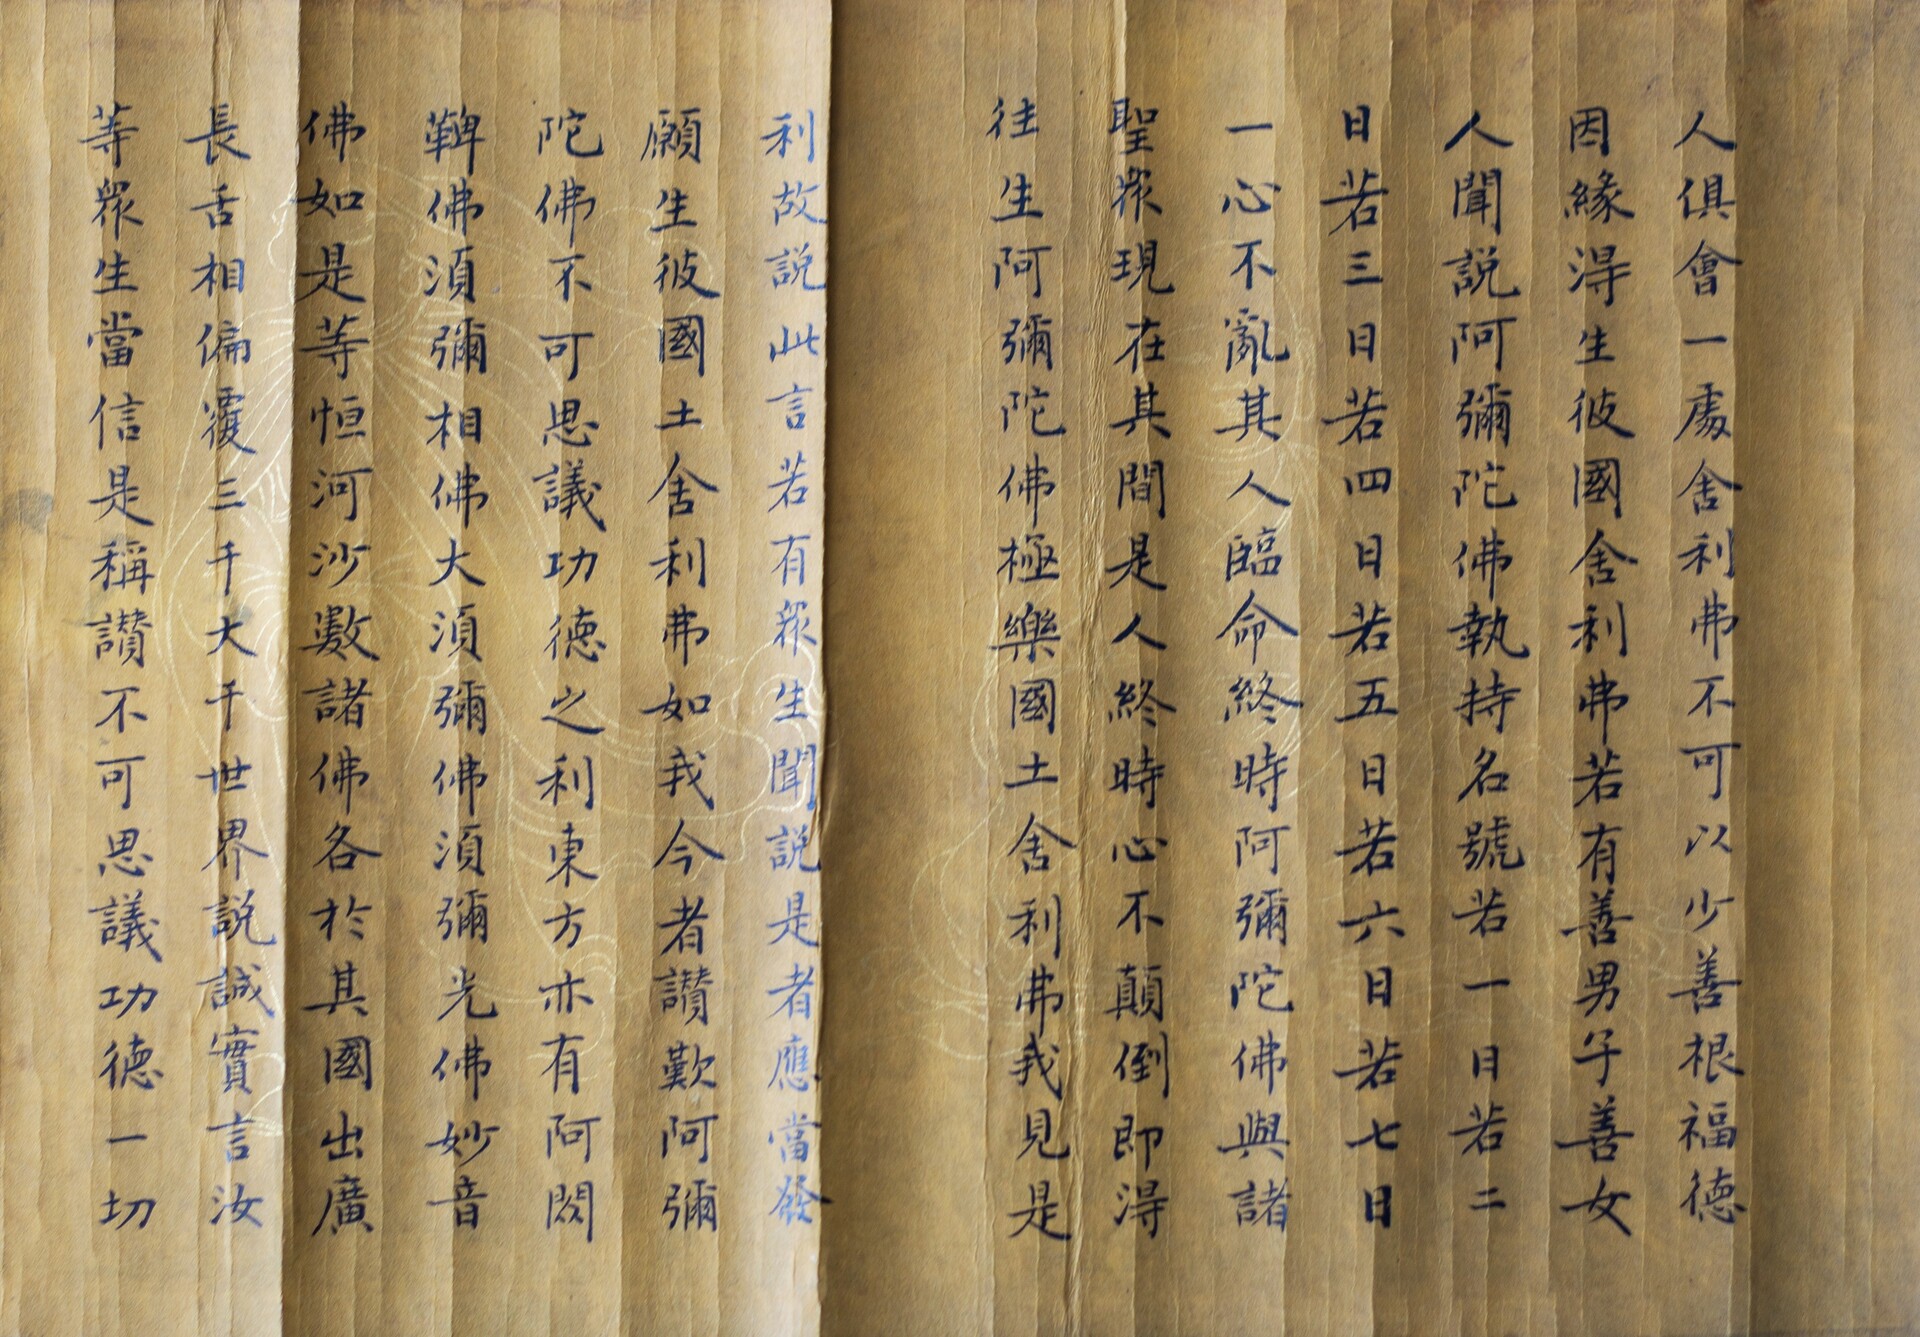 人俱會一處舍利弗不可以少善根福德
因緣得生彼國舍利弗若有善男子善女
人聞說阿彌陀佛執持名號若一日若二
日若三日若四日若五日若六日若七日
一心不亂其人臨命終時阿彌陀佛與諸
聖衆現在其間是人終時心不顛倒即得
往生阿彌陀佛極樂國土舍利弗我見是
利故說此言若有眾生聞說是者應當發
願生彼國土舍利弗如我今者讚歎阿彌
陀佛不可思議功德之利東方亦有阿閦
鞞佛須彌相佛大須彌佛須彌光佛妙音
佛如是等恒河沙數諸佛各於其國出廣
長舌相偏覆三千大千世界說誠實言汝
等眾生當信是稱讚不可思議功德一切